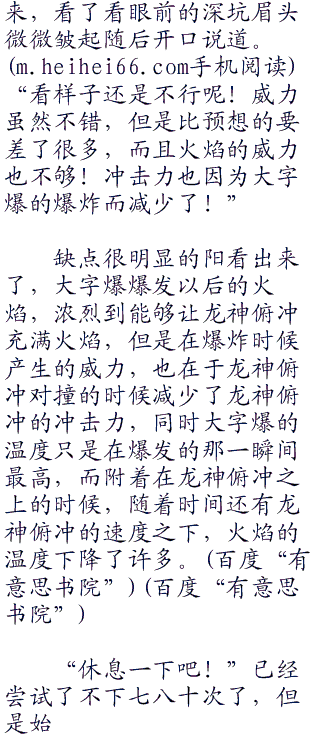 来，看了看眼前的深坑眉头
微微皱起随后开口说道。
(m.heihei66.com手机阅读)
“看样子还是不行呢！威力
虽然不错，但是比预想的要
差了很多，而且火焰的威力
也不够！冲击力也因为大字
爆的爆炸而减少了！”
缺点很明显的阳看出来
了，大字爆爆发以后的火
焰，浓烈到能够让龙神俯冲
充满火焰，但是在爆炸时候
产生的威力，也在于龙神俯
冲对撞的时候减少了龙神俯
冲的冲击力，同时大字爆的
温度只是在爆发的那一瞬间
最高，而附着在龙神俯冲之
上的时候，随着时间还有龙
神俯冲的速度之下，火焰的
温度下降了许多。(百度“有
意思书院”)(百度“有意思
书院”)
“休息一下吧！”已经
尝试了不下七八十次了，但
是始